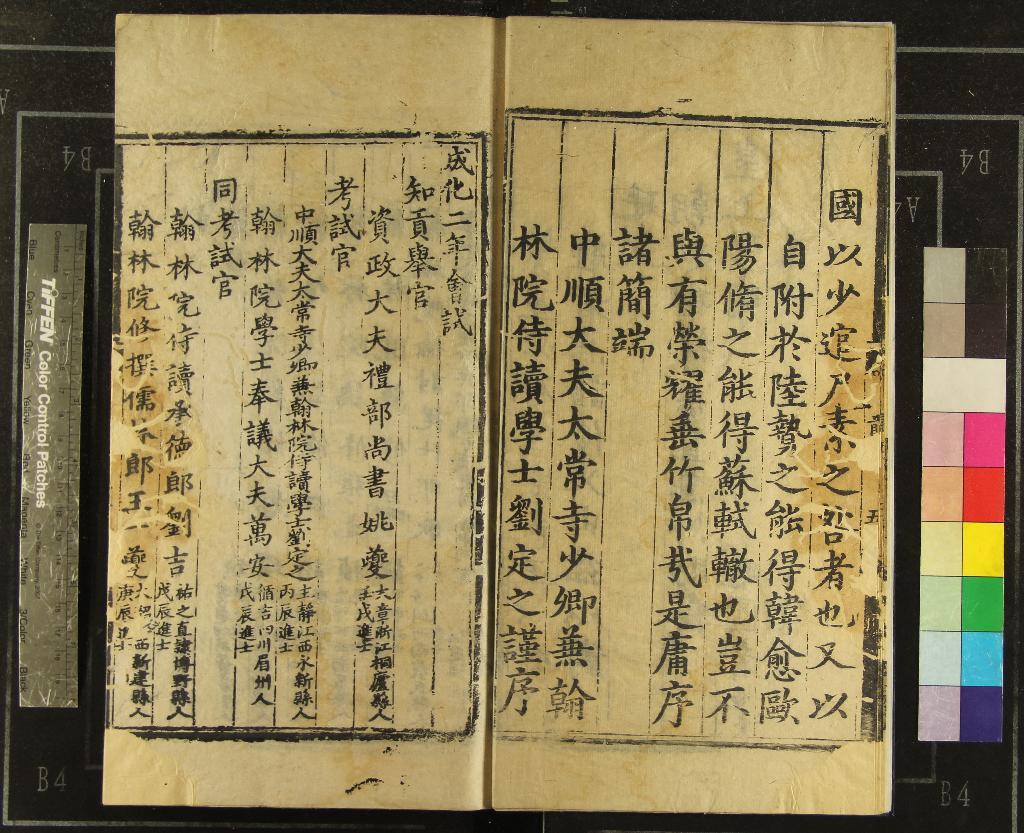 國以少定尺素之招者也又以
自附於陸贄之能得韓愈歐
陽脩之能得蘇軾轍也豈不
與有榮耀垂竹帛哉是庸序
諸簡端
中順大夫太常寺少卿兼翰
林院侍讀學士劉定之謹序
五
成化二年會試
知貢舉官
資政大夫禮部尚書姚夔 大章浙江桐廬縣人 壬戌進士
考試官
中順大夫太常寺少卿兼翰林院侍讀學士劉定之 主靜江西永新縣人 丙辰進士
翰林院學士奉議大夫萬安 循吉四川眉州人 戊辰進士
同考試官
翰林院侍讀承德郎劉吉 祐之直隸博野縣人 戊辰進士
翰林院修撰儒林郎王一夔 西新建縣人 庚辰進士
TIFFEN Color Control Patches
B4
B4
A4
B4
B4